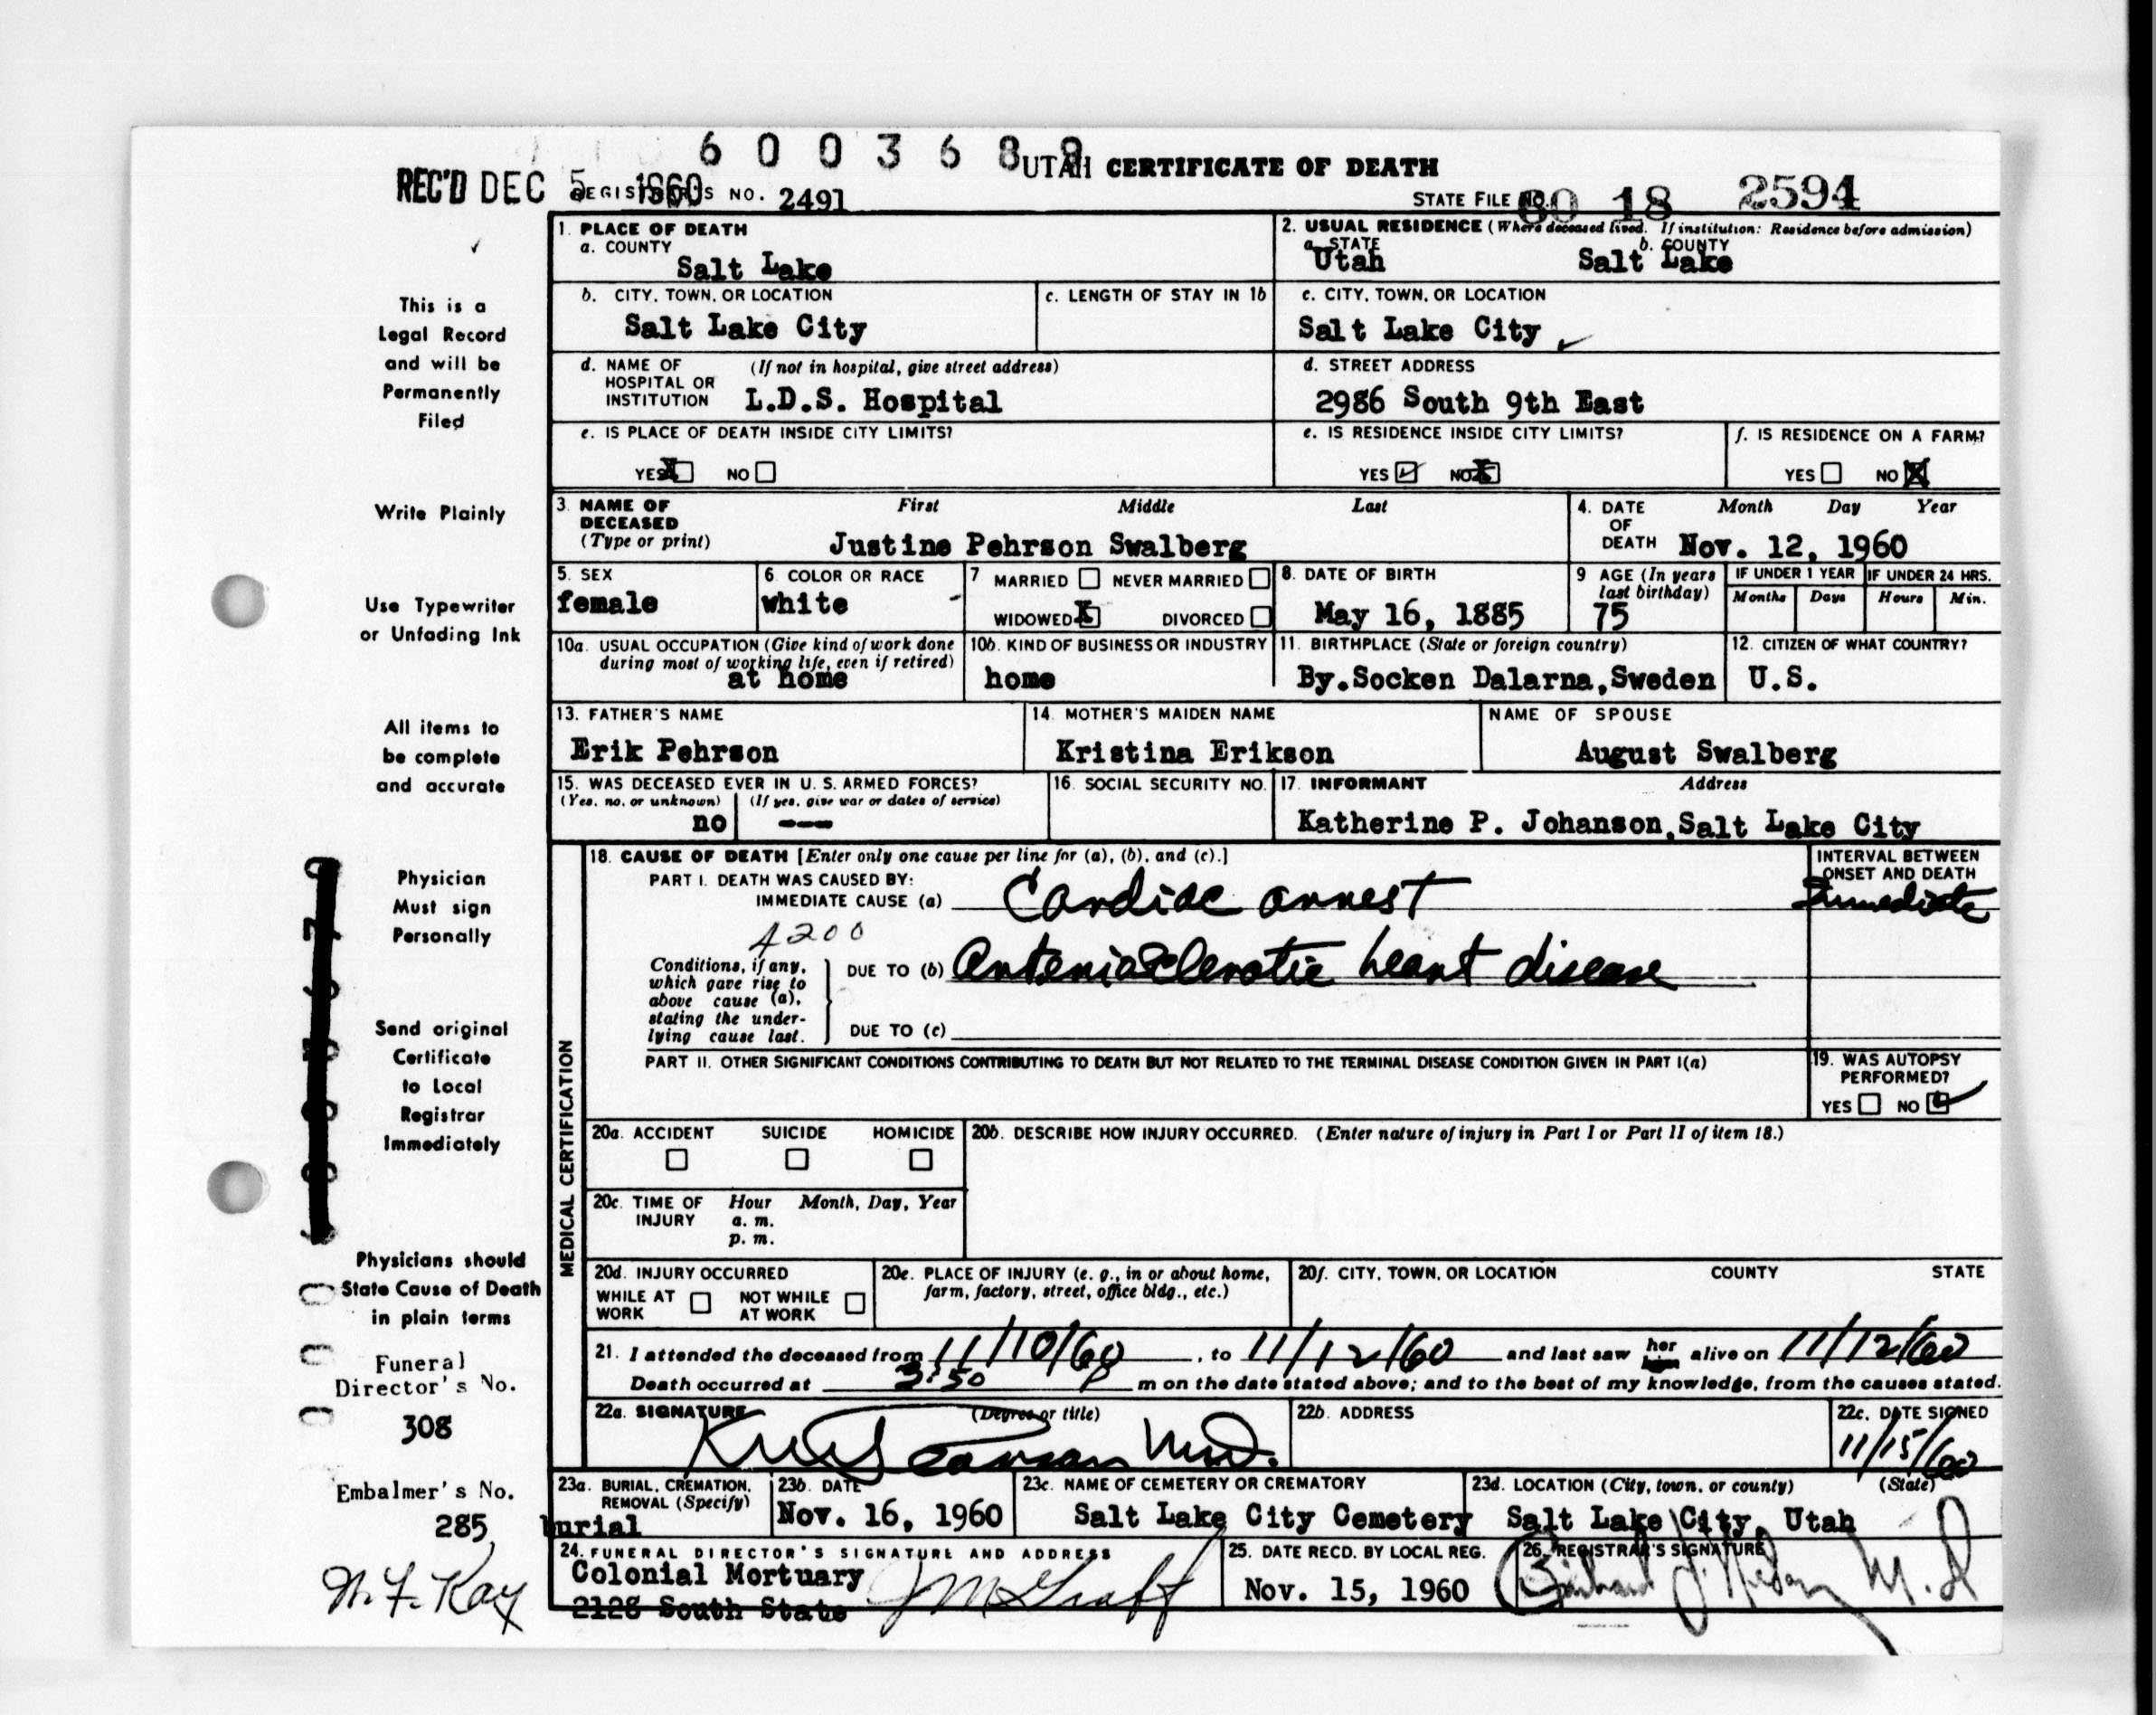 6 0 0 3 6 8 8
UTAH CERTIFICATE OF DEATH
REC'D DEC 5 1960
REGISTRAR'S NO. 2491
STATE FILE NO. 60 18 2594
1. PLACE OF DEATH
a. COUNTY
Salt Lake
2. USUAL RESIDENCE (Where deceased lived. If institution: Residence before admission)
a. STATE b. COUNTY
Utah Salt Lake
This is a
Legal Record
and will be
Permanently
Filed
b. CITY, TOWN, OR LOCATION
Salt Lake City
c. LENGTH OF STAY IN 1b
c. CITY, TOWN, OR LOCATION
Salt Lake City
d. NAME OF HOSPITAL OR INSTITUTION (If not in hospital, give street address)
L.D.S. Hospital
d. STREET ADDRESS
2986 South 9th East
e. IS PLACE OF DEATH INSIDE CITY LIMITS?
YES X NO
e. IS RESIDENCE INSIDE CITY LIMITS?
YES NO X
f. IS RESIDENCE ON A FARM?
YES NO X
Write Plainly
3. NAME OF DECEASED (Type or print)
First Middle Last
Justine Pehrson Swalberg
4. DATE OF DEATH Month Day Year
Nov. 12, 1960
Use Typewriter
or Unfading Ink
5. SEX
female
6. COLOR OR RACE
white
7 MARRIED NEVER MARRIED
WIDOWED X DIVORCED
8. DATE OF BIRTH
May 16, 1885
9 AGE (In years last birthday)
75
IF UNDER 1 YEAR IF UNDER 24 HRS.
Months Days Hours Min.
10a. USUAL OCCUPATION (Give kind of work done during most of working life, even if retired)
at home
10b. KIND OF BUSINESS OR INDUSTRY
home
11. BIRTHPLACE (State or foreign country)
By.Socken Dalarna,Sweden
12. CITIZEN OF WHAT COUNTRY?
U.S.
All items to
be complete
and accurate
13. FATHER'S NAME
Erik Pehrson
14. MOTHER'S MAIDEN NAME
Kristina Erikson
NAME OF SPOUSE
August Swalberg
15. WAS DECEASED EVER IN U.S. ARMED FORCES?
(Yes, no, or unknown) (If yes, give war or dates of service)
no ---
16. SOCIAL SECURITY NO.
17. INFORMANT Address
Katherine P. Johanson,Salt Lake City
Physician
Must sign
Personally
MEDICAL CERTIFICATION
18. CAUSE OF DEATH [Enter only one cause per line for (a), (b), and (c).]
PART I. DEATH WAS CAUSED BY:
IMMEDIATE CAUSE (a) Cardiac arrest
INTERVAL BETWEEN ONSET AND DEATH
Immediate
4200
Conditions, if any,
which gave rise to
above cause (a),
stating the under-
lying cause last.
DUE TO (b) Arteriosclerotic heart disease
DUE TO (c)
Send original
Certificate
to Local
Registrar
Immediately
PART II. OTHER SIGNIFICANT CONDITIONS CONTRIBUTING TO DEATH BUT NOT RELATED TO THE TERMINAL DISEASE CONDITION GIVEN IN PART I(a)
19. WAS AUTOPSY PERFORMED?
YES NO
20a. ACCIDENT SUICIDE HOMICIDE
20b. DESCRIBE HOW INJURY OCCURRED. (Enter nature of injury in Part I or Part II of item 18.)
20c. TIME OF INJURY Hour Month, Day, Year
a. m.
p. m.
Physicians should
State Cause of Death
in plain terms
20d. INJURY OCCURRED
WHILE AT WORK NOT WHILE AT WORK
20e. PLACE OF INJURY (e. g., in or about home, farm, factory, street, office bldg., etc.)
20f. CITY, TOWN, OR LOCATION COUNTY STATE
21. I attended the deceased from 11/10/60, to 11/12/60 and last saw her him alive on 11/12/60
Death occurred at 3:50 P m on the date stated above; and to the best of my knowledge, from the causes stated.
Funeral
Director's No.
308
22a. SIGNATURE (Degree or title)
M.D.
22b. ADDRESS
22c. DATE SIGNED
11/15/60
Embalmer's No.
285
23a. BURIAL, CREMATION, REMOVAL (Specify)
burial
23b. DATE
Nov. 16, 1960
23c. NAME OF CEMETERY OR CREMATORY
Salt Lake City Cemetery
23d. LOCATION (City, town, or county) (State)
Salt Lake City, Utah
24. FUNERAL DIRECTOR'S SIGNATURE AND ADDRESS
Colonial Mortuary
2128 South State
25. DATE RECD. BY LOCAL REG.
Nov. 15, 1960
26. REGISTRAR'S SIGNATURE
M.D